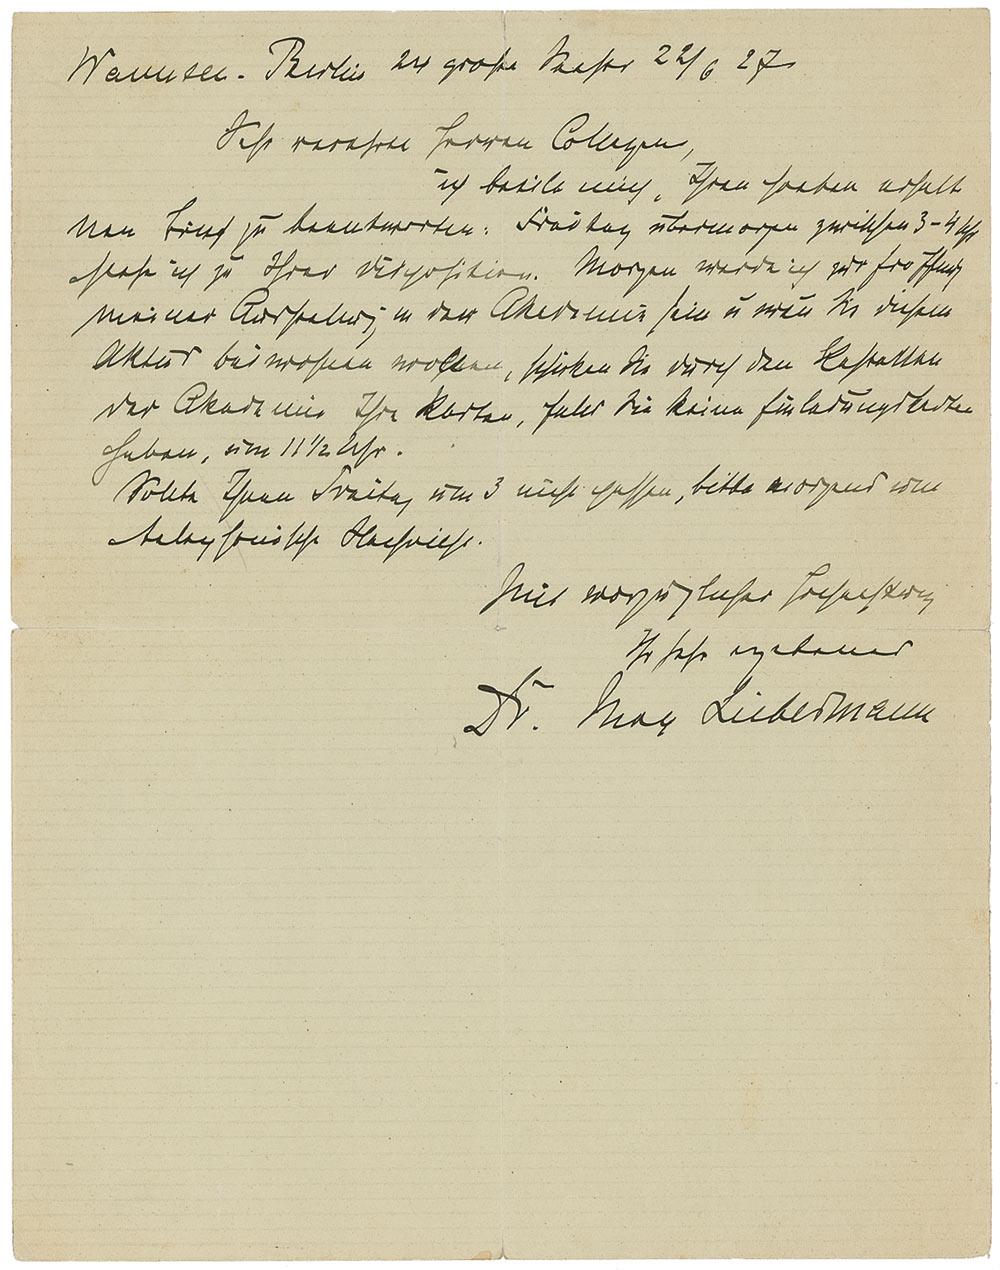 Wannsee-Berlin 24 große Seestr 22/6 27
Sehr verehrter Herr Collegen,
ich beeile mich, Ihren soeben erhalt
nen Brief zu beantworten: Freitag übermorgen zwischen 3-4 Uhr
stehe ich zu Ihrer Disposition. Morgen werde ich zur Eröffnung
meiner Ausstellung in der Akademie sein u wenn Sie diesem
Aktus beiwohnen wollen, schicken Sie durch den Kastellan
der Akademie Ihre Karten, falls Sie keine Einladungskarten
haben, um 11 1/2 Uhr.
Sollte Ihnen Freitag um 3 nicht passen, bitte morgens um
telephonische Nachricht.
Mit vorzüglicher Hochachtung
Ihr sehr ergebener
Dr. Max Liebermann